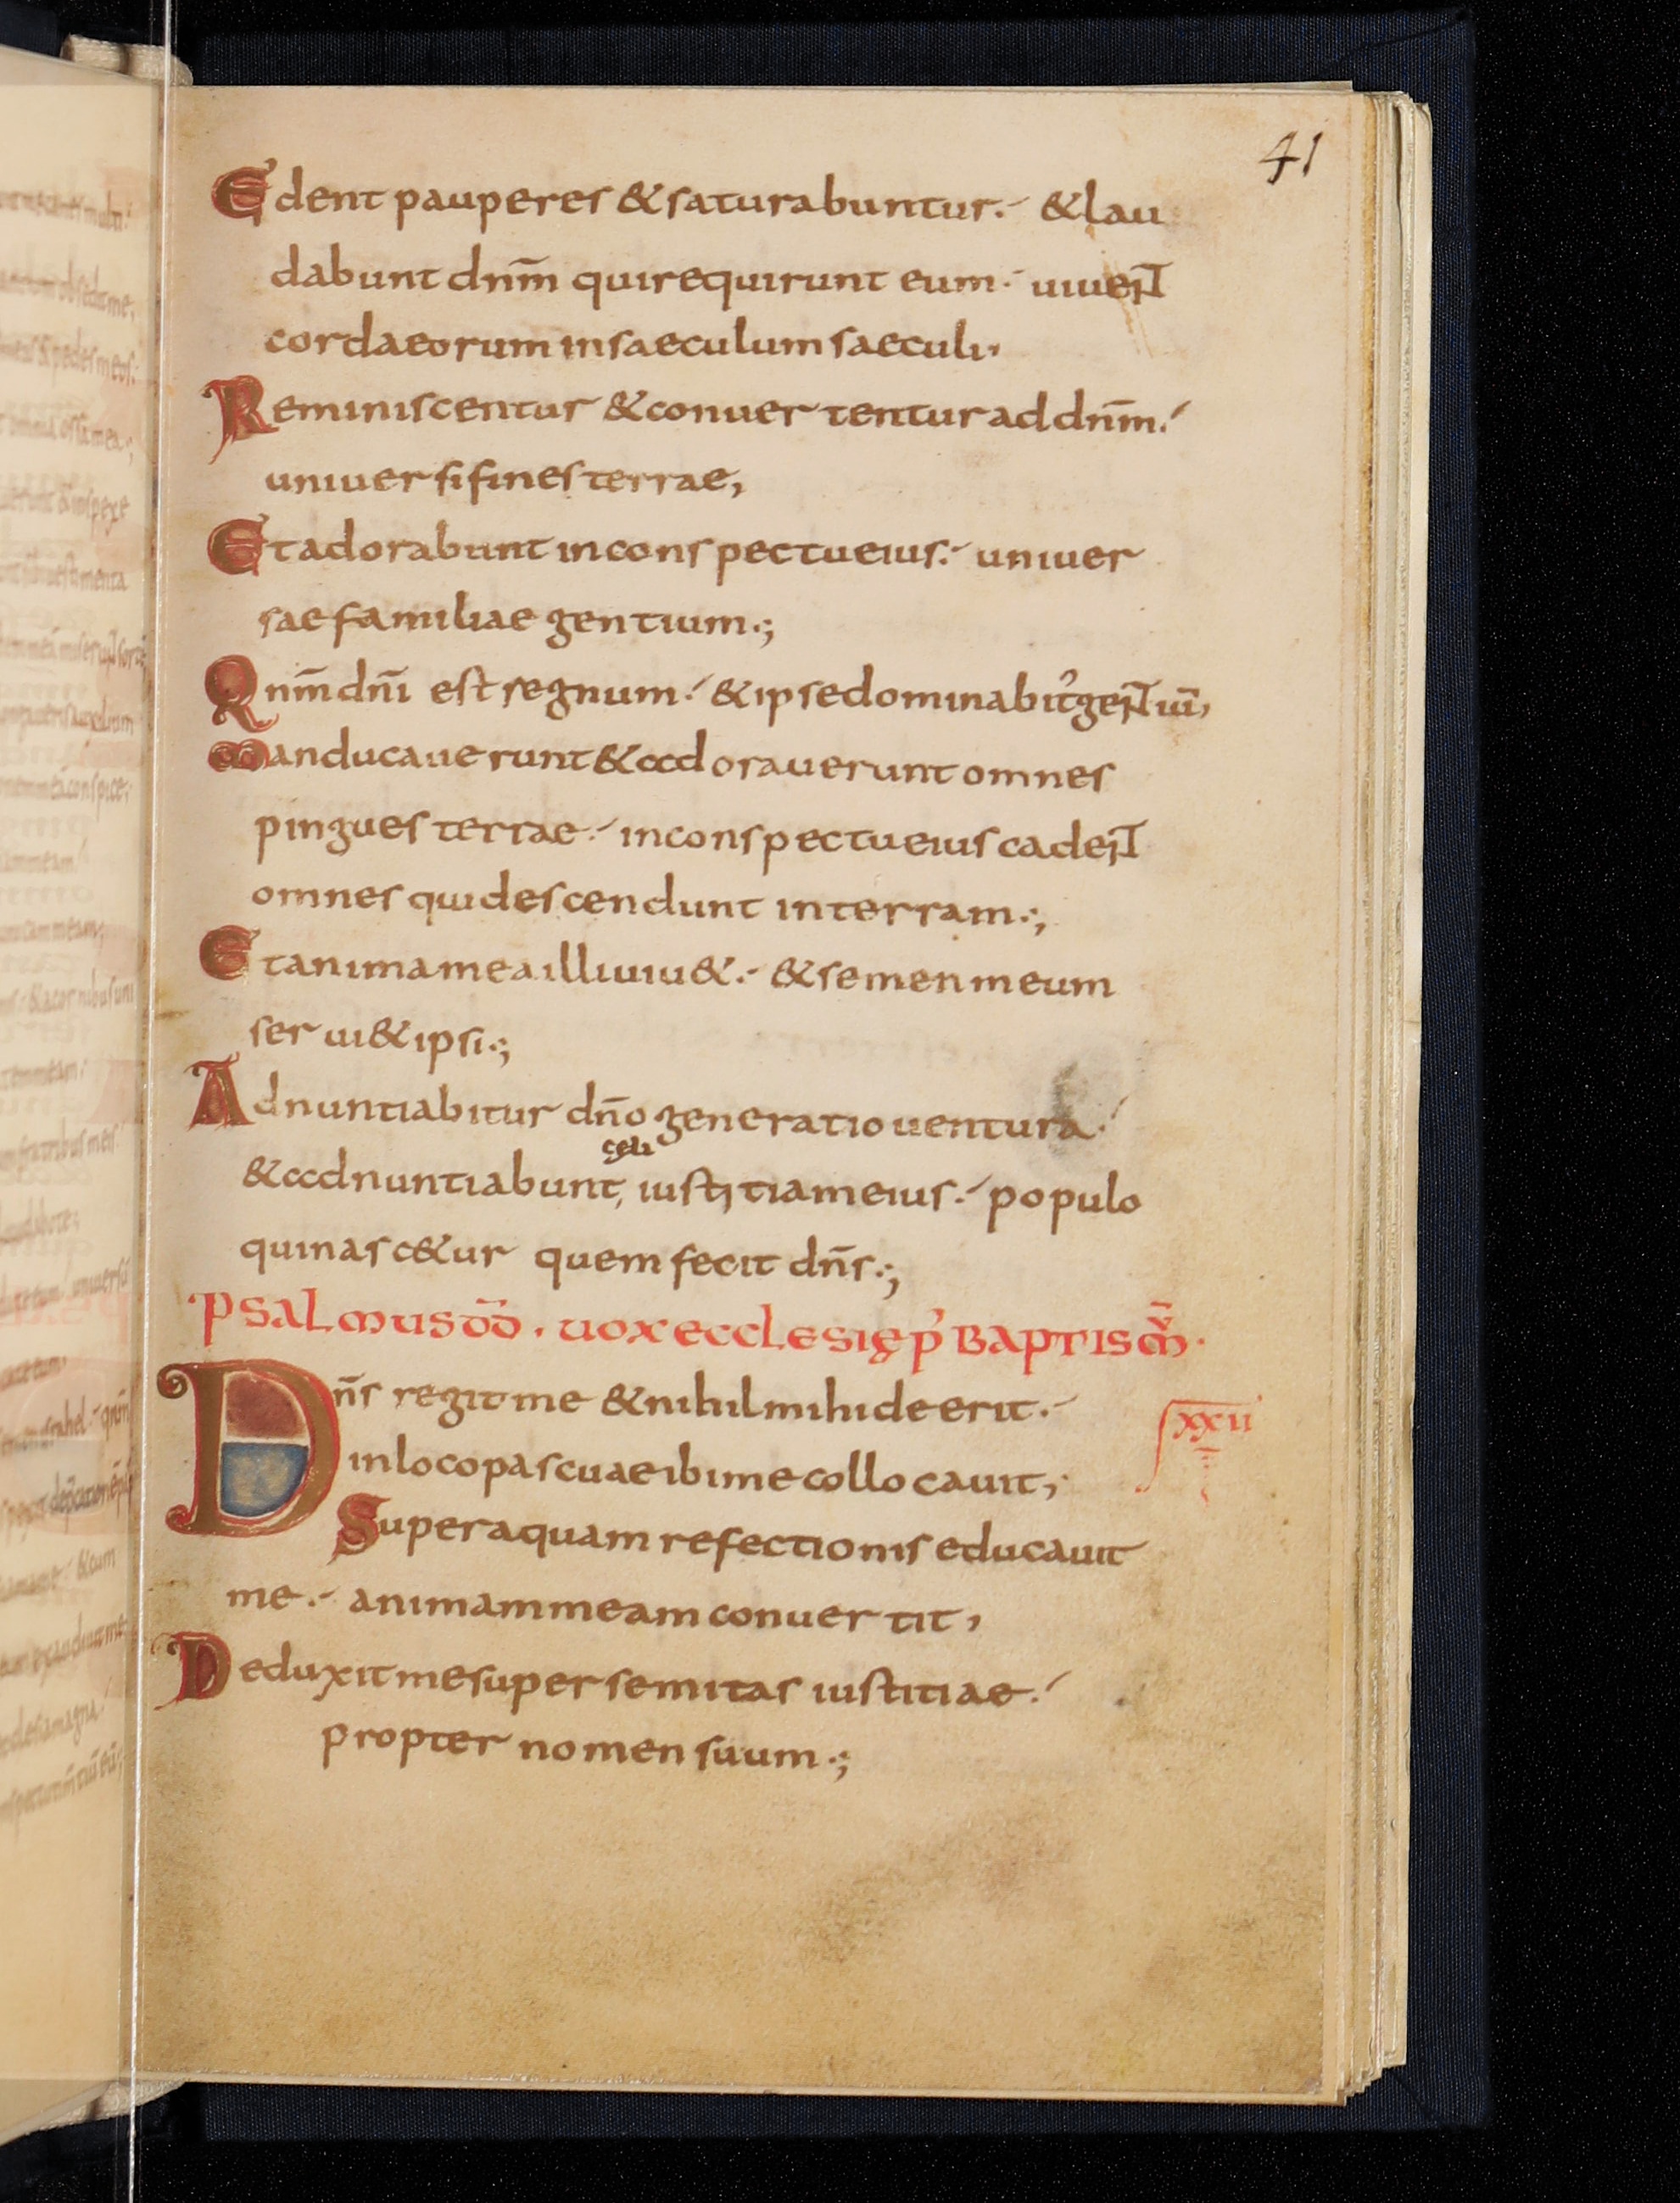 41
Edent pauperes & saturabuntur. & lau
dabunt dnm̄ qui requirunt eum. uiuent
corda eorum in saeculum saeculi,
Reminiscentur & conuertentur ad dnm̄.
uniuersi fines terrae,
Et adorabunt in conspectu eius. uniuer
sae familiae gentium.;
Qnm̄ dnī est regnum. & ipse dominabit᾽ gentiū,
Manducauerunt & adorauerunt omnes
pingues terrae. in conspectu eius cadent
omnes qui descendunt in terram.;
Et anima mea illi uiu&. & semen meum
serui& ipsi.;
Adnuntiabitur dn̄o generatio uentura.
celi
& adnuntiabunt, iustitiam eius. populo
qui nasc&ur quem fecit dn̄s.;
Psalmus dd̄. uox ecclesię p᾽ baptism̄.
Dn̄s regit me & nihil mihi deerit.
in loco pascuae ibi me collocauit,
XXII
Super aquam refectionis educauit
me. animam meam conuertit,
Deduxit me super semitas iustitiae.
propter nomen suum.;